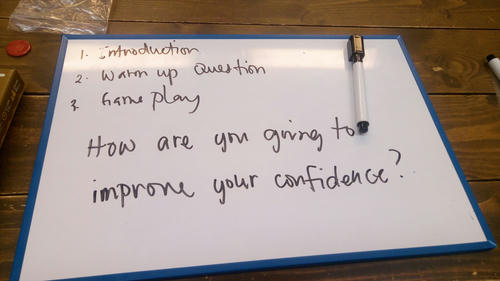 1. Introduction
2. Warm up question
3. Game play
How are you going to
improve your confidence?